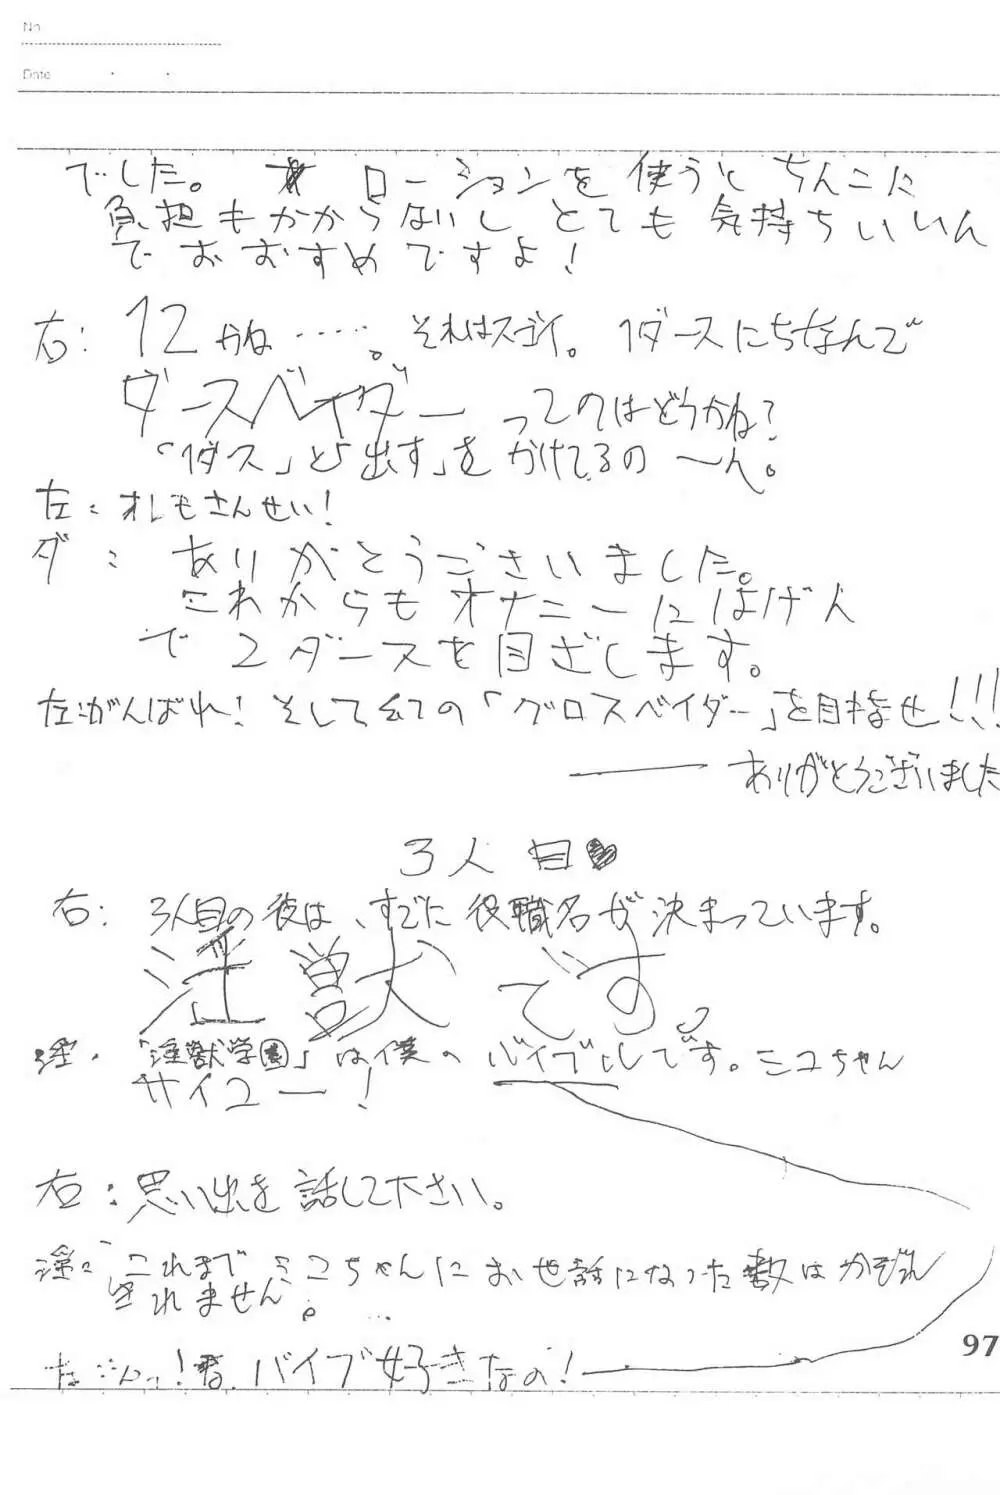 No.
Date
でした。 ローションを使うと ちんこに
負担もかからないし とても 気持ちいいん
で おすすめですよ!
右: 12かね……。それはスゴイ。1ダースにちなんで
ダースベイダー ってのはどうかね?
「1ダス」と「出す」をかけてるの〜ん。
左: オレもさんせい!
ダ: ありがとうございました。
これからもオナニーにはげん
で 2ダースを目ざします。
左:がんばれ! そして 「グロスベイダー」を目指せ!!!
ありがとうございました
3人目
右: 3人目の彼は、すでに役職名が決まっています。
淫獣です。
淫: 「淫獣学園」は僕の バイブルです。ミユちゃん
サイコー!
右: 思い出を話して下さい。
淫: これまでミユちゃんにお世話になった数はかぞえ
きれません。…
バイブ好きなの!
97